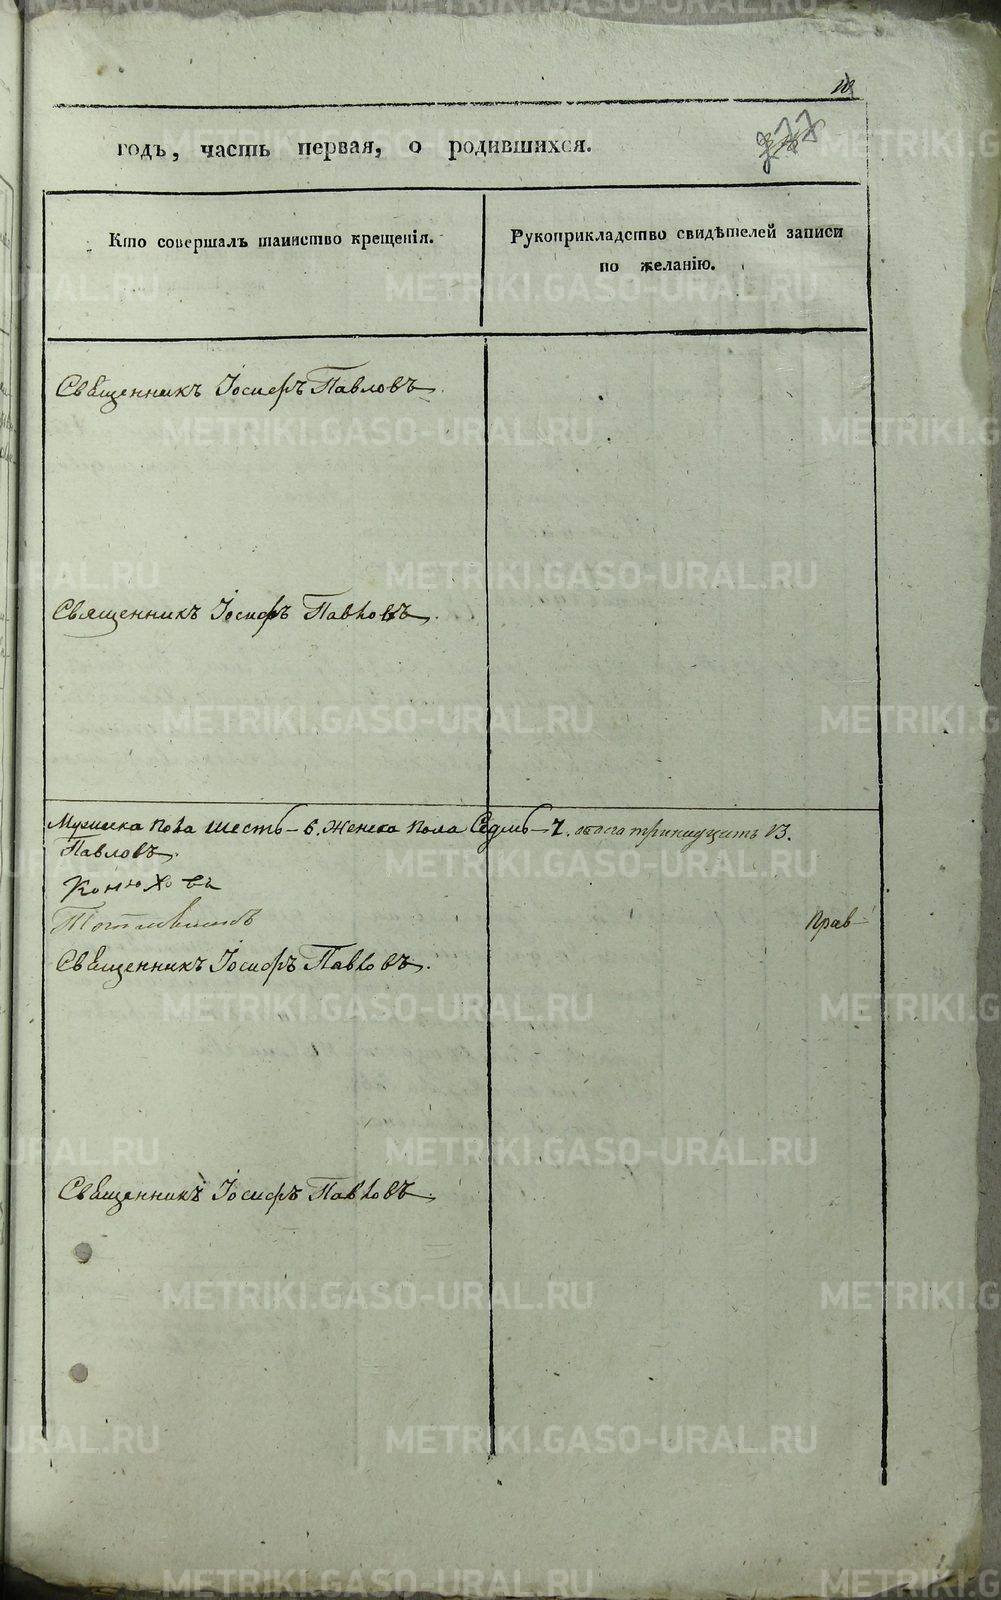 годъ, часть первая, о родившихся.
377
Кто совершалъ таинство крещенія.
Рукоприкладство свидѣтелей записи
по желанію.
Священникъ Іосифъ Павловъ.
Священникъ Іосифъ Павловъ.
Мужеска пола шесть – 6. Женска пола Седмь – 7. обоего тринадцать 13.
Павловъ.
Конюховъ
Прав
Священникъ Іосифъ Павловъ.
Священникъ Іосифъ Павловъ.
METRIKI.GASO-URAL.RU